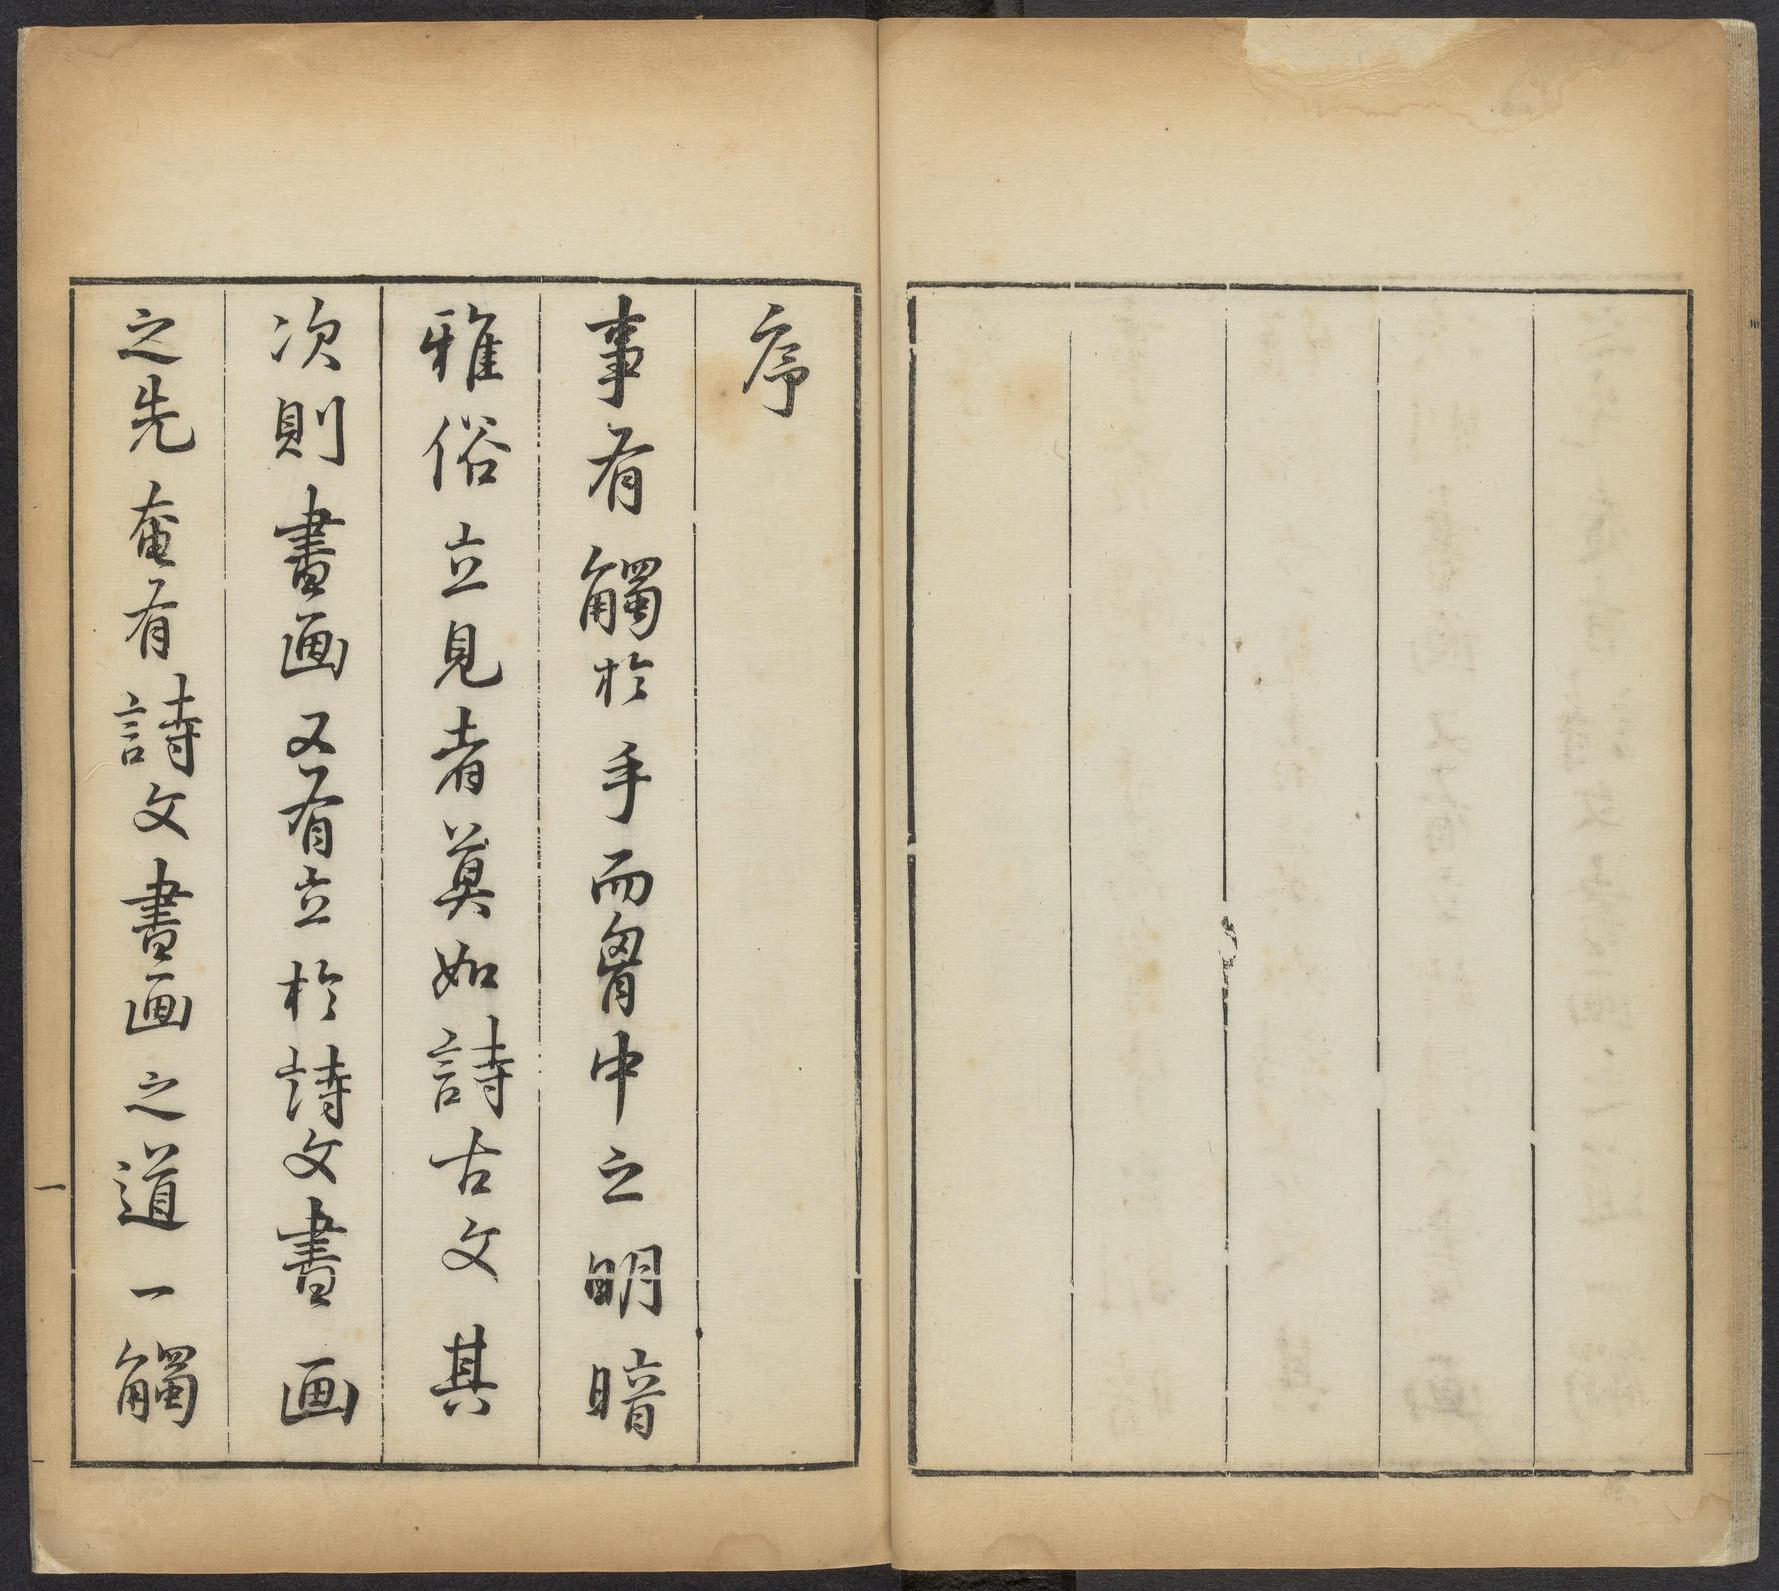 序
事有觸於手而胷中之明暗
雅俗立見者莫如詩古文其
次則書画又有立於詩文書画
之先奄有詩文書画之道一觸
一